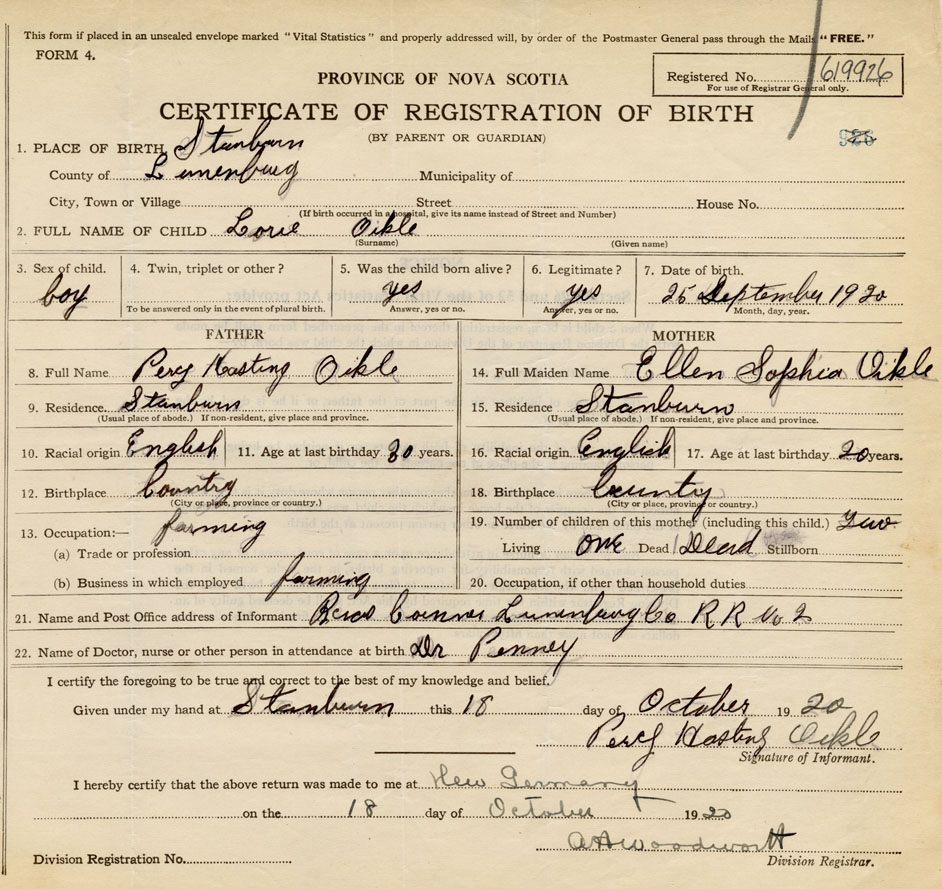 This form if placed in an unsealed envelope marked "Vital Statistics" and properly addressed will, by order of the Postmaster General pass through the Mails "FREE."
FORM 4.
PROVINCE OF NOVA SCOTIA
Registered No. 619926
For use of Registrar General only.
CERTIFICATE OF REGISTRATION OF BIRTH
(BY PARENT OR GUARDIAN)
926
1. PLACE OF BIRTH Stanburn
County of Lunenburg Municipality of
City, Town or Village Street House No.
(If birth occurred in a hospital, give its name instead of Street and Number)
2. FULL NAME OF CHILD Lorie Oikle
(Surname) (Given name)
3. Sex of child. boy
4. Twin, triplet or other?
To be answered only in the event of plural birth.
5. Was the child born alive? yes
Answer, yes or no.
6. Legitimate? yes
Answer, yes or no.
7. Date of birth. 25 September 1920
Month, day, year.
FATHER
8. Full Name Percy Hasting Oikle
9. Residence. Stanburn
(Usual place of abode.) If non-resident, give place and province.
10. Racial origin English 11. Age at last birthday 30 years.
12. Birthplace Country
(City or place, province or country.)
13. Occupation:— farming
(a) Trade or profession
(b) Business in which employed farming
MOTHER
14. Full Maiden Name Ellen Sophia Oikle
15. Residence Stanburn
(Usual place of abode.) If non-resident, give place and province.
16. Racial origin English 17. Age at last birthday 20 years.
18. Birthplace Country
(City or place, province or country.)
19. Number of children of this mother (including this child.) Two
Living one Dead 1 Dead Stillborn
20. Occupation, if other than household duties
21. Name and Post Office address of Informant Lunenburg Co R R No 2
22. Name of Doctor, nurse or other person in attendance at birth Dr Penney
I certify the foregoing to be true and correct to the best of my knowledge and belief.
Given under my hand at Stanburn this 18 day of October 1920
Percy Hasting Oikle
Signature of Informant.
I hereby certify that the above return was made to me at New Germany
on the 18 day of October 1920
A H Woodworth
Division Registration No. Division Registrar.